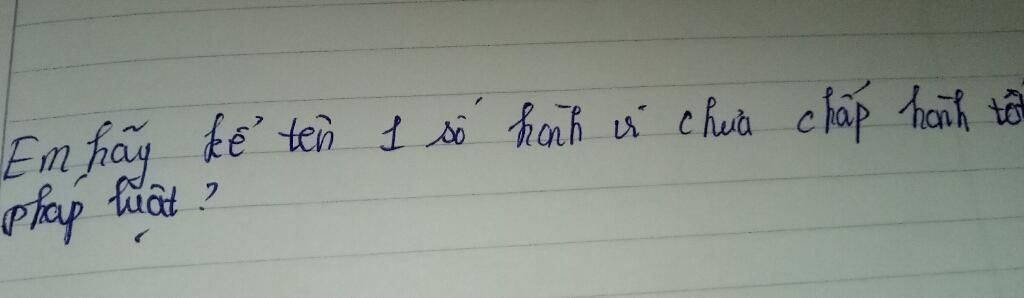 Em hãy kể tên 1 số hành vi chưa chấp hành tốt
pháp luật?